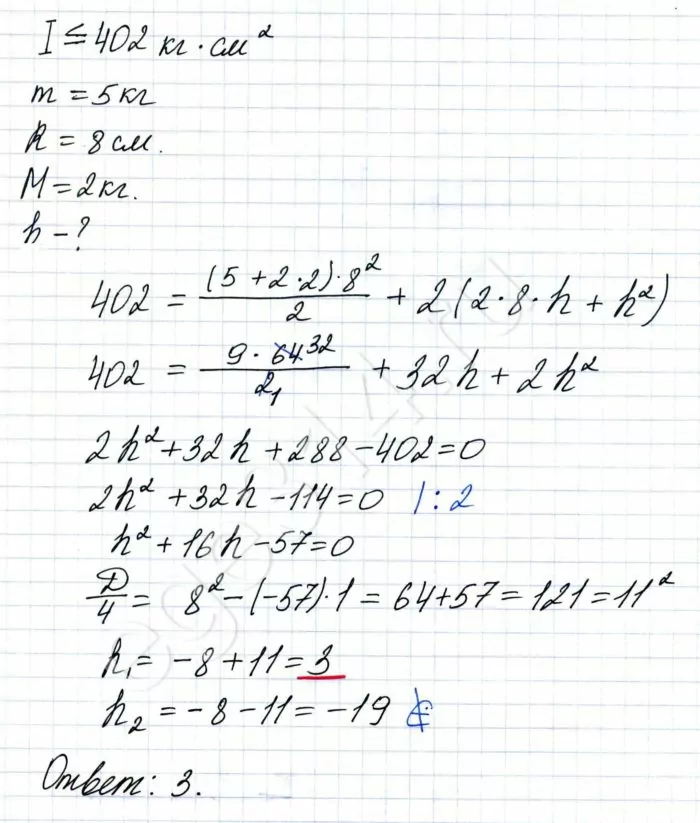 I ≤ 402 кг · см²
m = 5 кг
R = 8 см.
M = 2 кг.
h – ?
402 = (5 + 2 · 2) · 8² / 2 + 2 (2 · 8 · h + h²)
402 = 9 · 64 32 / 2 1 + 32h + 2h²
2h² + 32h + 288 – 402 = 0
2h² + 32h – 114 = 0 | : 2
h² + 16h – 57 = 0
D/4 = 8² – (–57) · 1 = 64 + 57 = 121 = 11²
h₁ = –8 + 11 = 3
h₂ = –8 – 11 = –19
Ответ: 3.